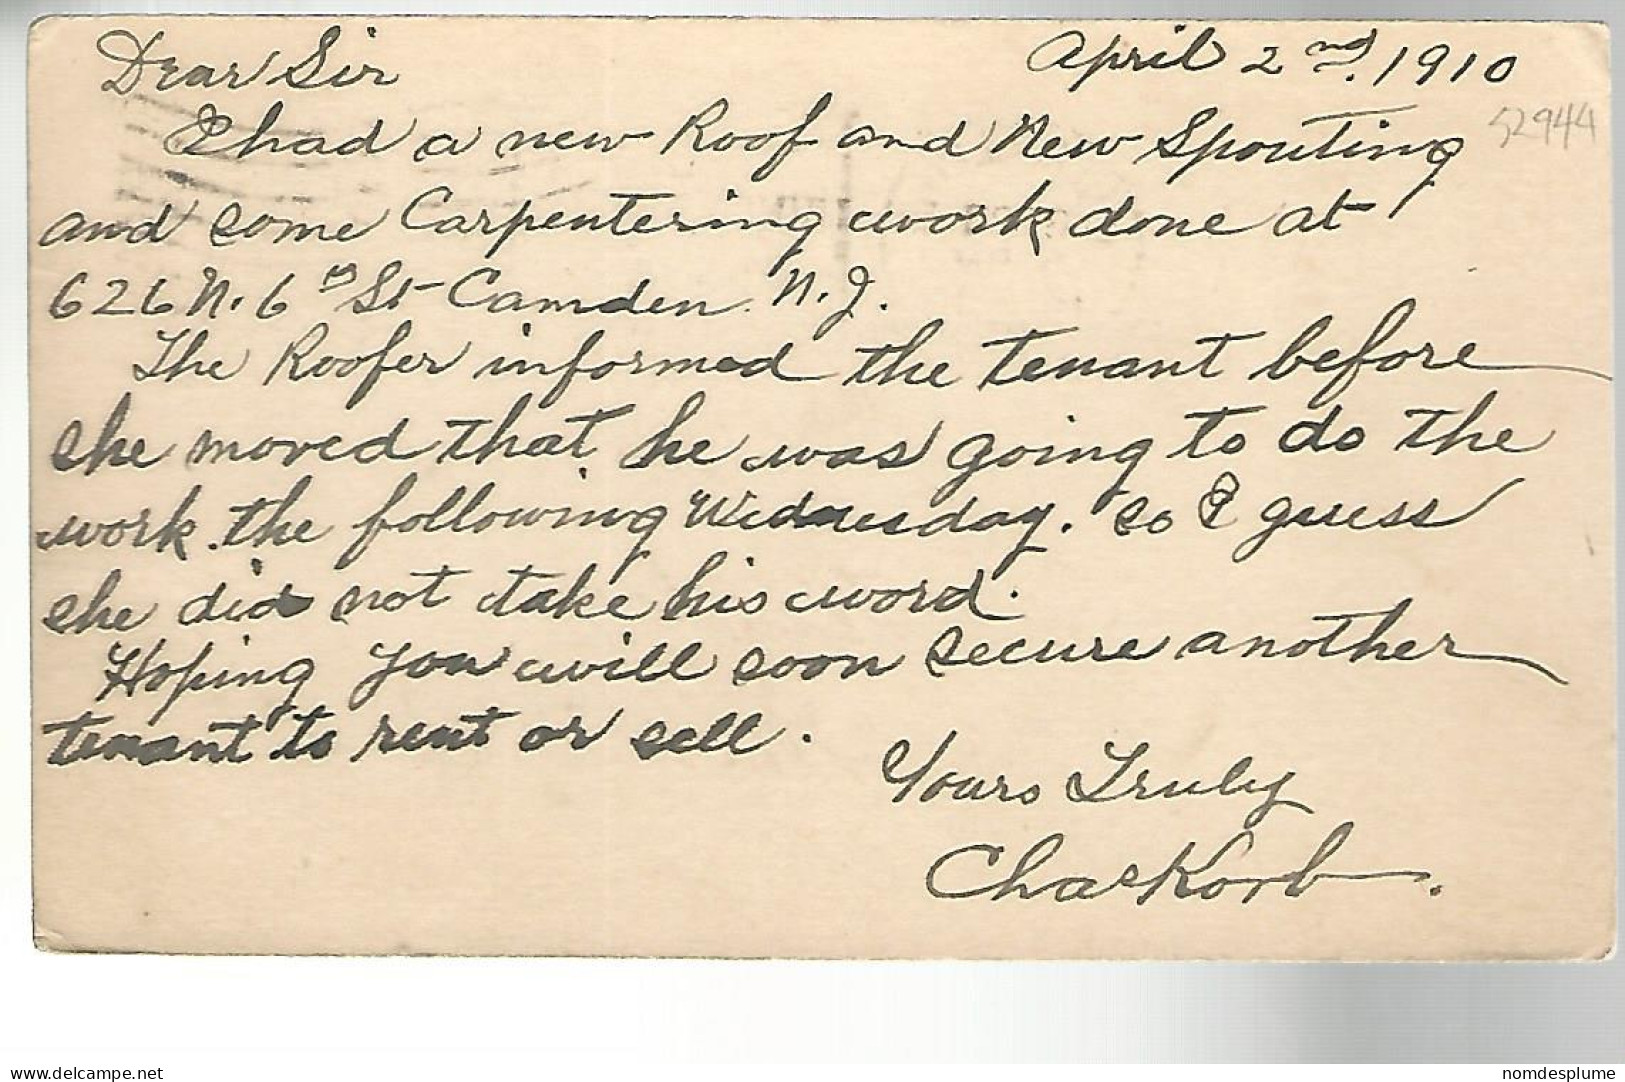 Dear Sir April 2nd. 1910
52944
I had a new Roof and New Spouting
and some Carpentering work done at
626 N. 6th St Camden N.J.
The Roofer informed the tenant before
she moved that he was going to do the
work the following Wednesday. so I guess
she did not take his word.
Hoping you will soon secure another
tenant to rent or sell.
Yours Truly
Chas Korb.
delcampe.net
nomdesplume